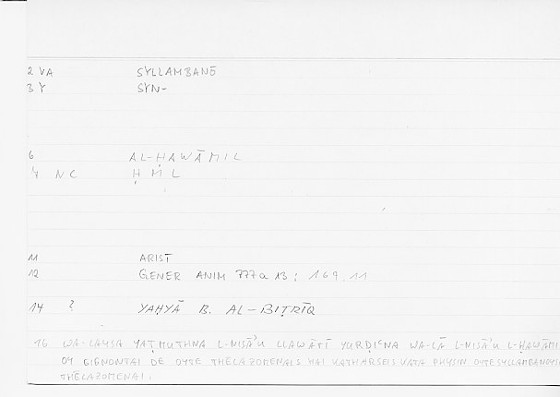 2 VA SYLLAMBANŌ
3 Y SYN-
6 AL-ḤAWĀMIL
4 NC ḤML
11 ARIST
12 GENER ANIM 777a 13 ; 169.11
14 ? YAḤYĀ B. AL-BIṬRĪQ
16 WA-LAYSA YAṬMUTHNA L-NISĀʾU LLAWĀTĪ YURḌIʿNA WA-LĀ L-NISĀʾU L-ḤAWĀMI
OY GIGNONTAI DE OYTE THĒLAZOMENAIS HAI KATHARSEIS KATA PHYSIN OYTE SYLLAMBANOYSI
THĒLAZOMENAI.